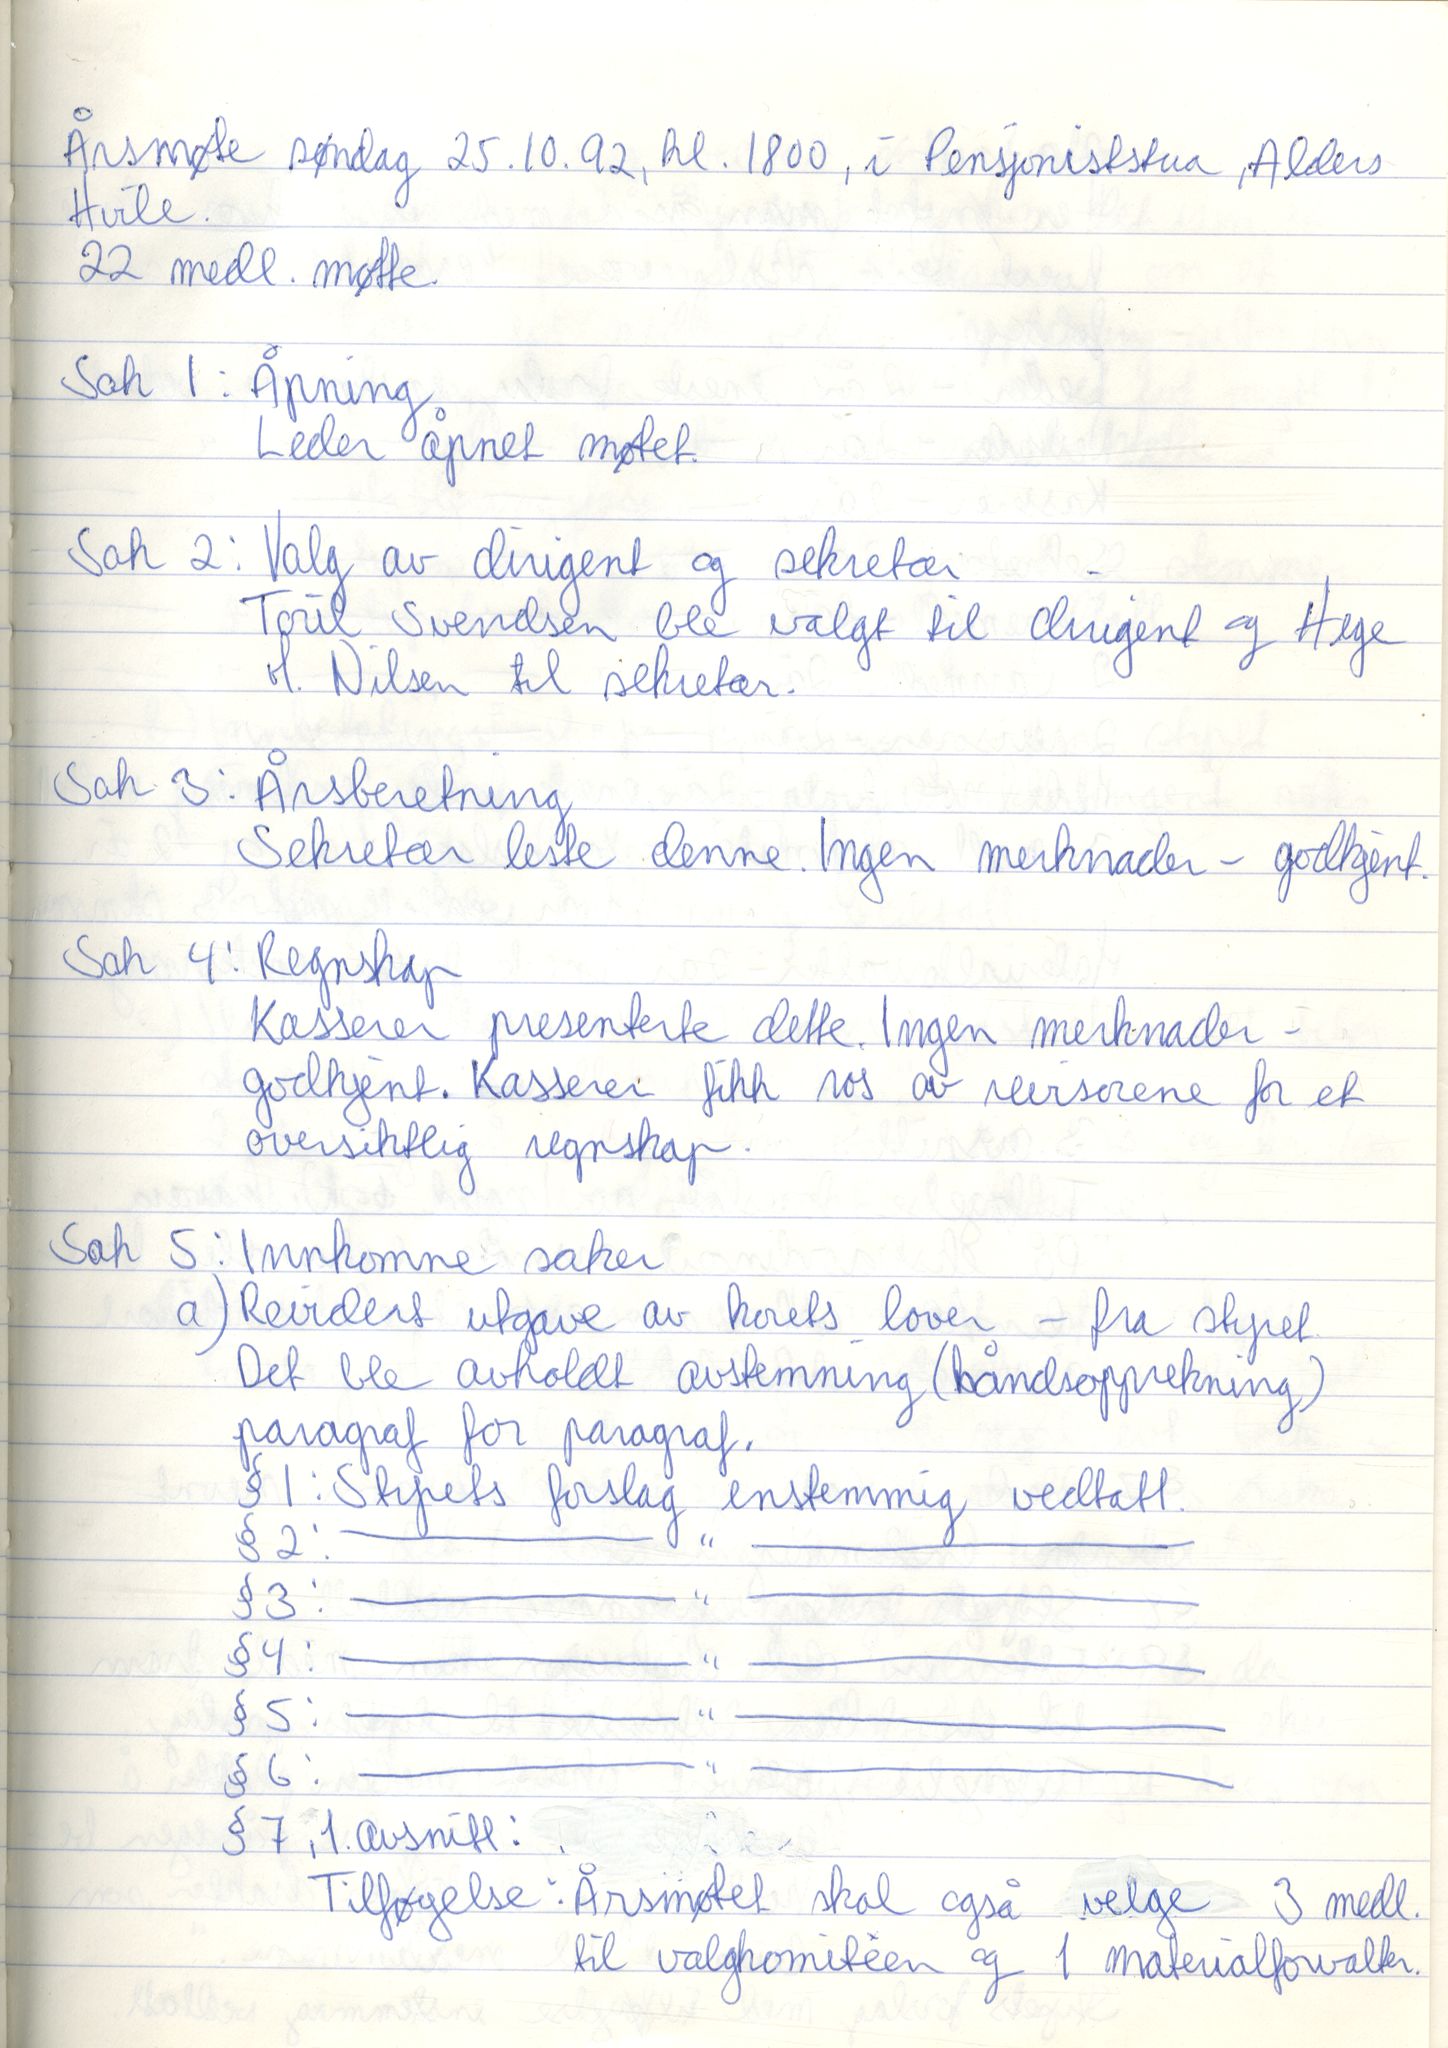 Årsmøte søndag 25.10.92, kl. 1800, i Pensjoniststua, Alders
Hvile.
22 medl. møtte.
Sak 1: Åpning
Leder åpnet møtet.
Sak 2: Valg av dirigent og sekretær
Toril Svendsen ble valgt til dirigent og Hege
H. Nilsen til sekretær.
Sak 3: Årsberetning
Sekretær leste denne. Ingen merknader - godkjent.
Sak 4: Regnskap
Kasserer presenterte dette. Ingen merknader -
godkjent. Kasserer fikk ros av revisorene for et
oversiktlig regnskap.
Sak 5: Innkomne saker
a) Revidert utgave av korets lover - fra styret
Det ble avholdt avstemning (håndsopprekning)
paragraf for paragraf.
§ 1: Styrets forslag enstemmig vedtatt.
§ 2: — " —
§ 3: — " —
§ 4: — " —
§ 5: — " —
§ 6: — " —
§ 7, 1. avsnitt:
Tilføyelse: Årsmøtet skal også velge 3 medl.
til valgkomitéen og 1 materialforvalter.